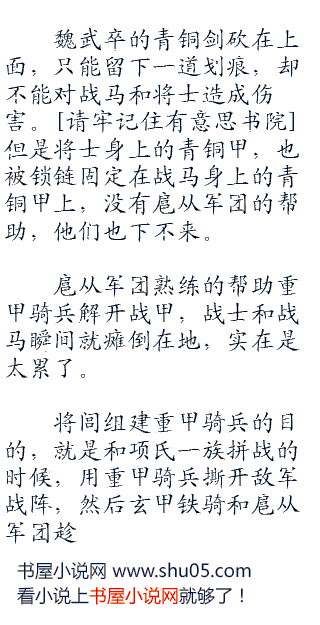 魏武卒的青铜剑砍在上
面，只能留下一道划痕，却
不能对战马和将士造成伤
害。[请牢记住有意思书院]
但是将士身上的青铜甲，也
被锁链固定在战马身上的青
铜甲上，没有扈从军团的帮
助，他们也下不来。
扈从军团熟练的帮助重
甲骑兵解开战甲，战士和战
马瞬间就瘫倒在地，实在是
太累了。
将闾组建重甲骑兵的目
的，就是和项氏一族拼战的
时候，用重甲骑兵撕开敌军
战阵，然后玄甲铁骑和扈从
军团趁
书屋小说网 www.shu05.com
看小说上书屋小说网就够了！